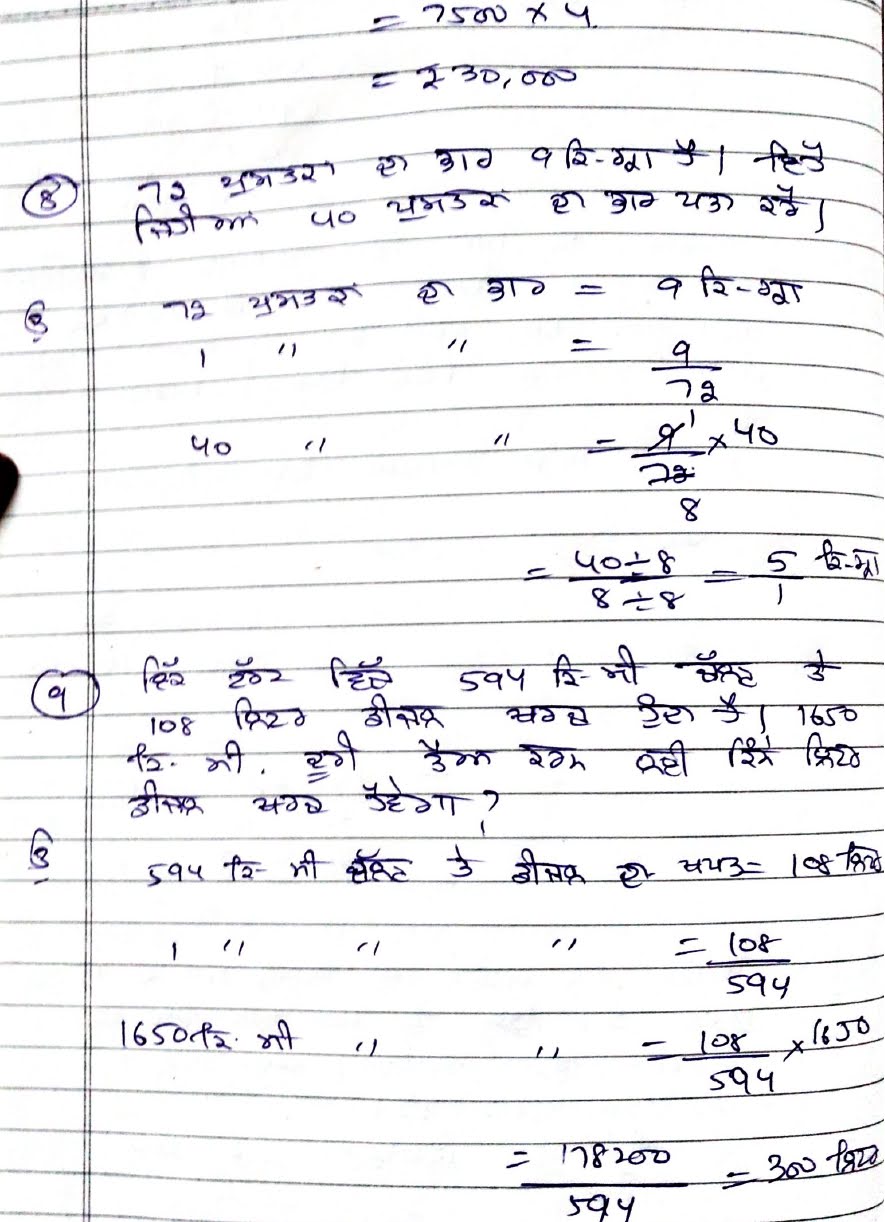 = 7500 × 4
= ₹30,000
8 72 ਪੁਸਤਕਾਂ ਦਾ ਭਾਰ 9 ਕਿ-ਗ੍ਰਾ ਹੈ। ਇਹੋ
ਜਿਹੀਆਂ 40 ਪੁਸਤਕਾਂ ਦਾ ਭਾਰ ਪਤਾ ਕਰੋ।
ਉ 72 ਪੁਸਤਕਾਂ ਦਾ ਭਾਰ = 9 ਕਿ-ਗ੍ਰਾ
1 " " = 9/72
40 " " = 9 1/72 8 × 40
= 40÷8/8÷8 = 5/1 ਕਿ-ਗ੍ਰਾ
9 ਇੱਕ ਟੱਰਕ ਵਿੱਚ 594 ਕਿ-ਮੀ ਚੱਲਣ ਤੇ
108 ਲਿਟਰ ਡੀਜਲ ਖਰਚ ਹੁੰਦਾ ਹੈ। 1650
ਕਿ. ਮੀ. ਦੂਰੀ ਤੈਅ ਕਰਨ ਲਈ ਕਿੰਨੇ ਲਿਟਰ
ਡੀਜਲ ਖਰਚ ਹੋਵੇਗਾ?
ਉ 594 ਕਿ- ਮੀ ਚੱਲਣ ਤੇ ਡੀਜਲ ਦਾ ਖਪਤ= 108 ਲਿਟਰ
1 " " " = 108/594
1650 ਕਿ. ਮੀ " " = 108/594 × 1650
= 178200/594 = 300 ਲਿਟਰ